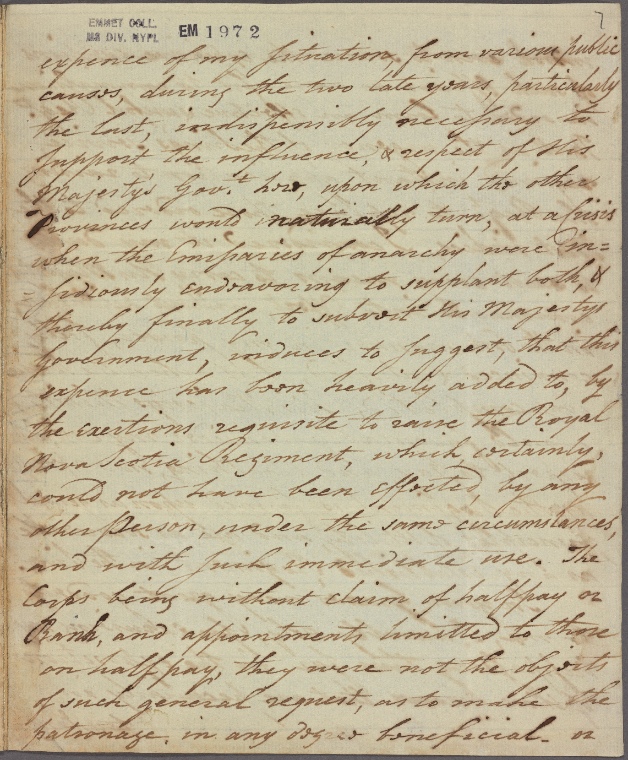 7
EMMET COLL.
MS DIV. NYPL
EM 1972
expence of my Situation, from various public
causes, during the two late years, particularly
the last, indispensibly necessary to
Support the influence, & respect of His
Majestys Gov.t here, upon which the other
Provinces would naturally turn, at a Crisis
when the Emissaries of anarchy were in=
sidiously endeavoring to supplant both, &
thereby finally to subvert His Majestys
Government, induces to Suggest, that this
expence has been heavily added to, by
the exertions requisite to raise the Royal
Nova Scotia Regiment, which, certainly,
could not have been effected, by any
other Person, under the same circumstances,
and with Such immediate use. The
Corps being without claim of halfpay or
Rank, and appointments limitted to those
on halfpay, they were not the objects
of such general request, as to make the
patronage, in any degree beneficial - or